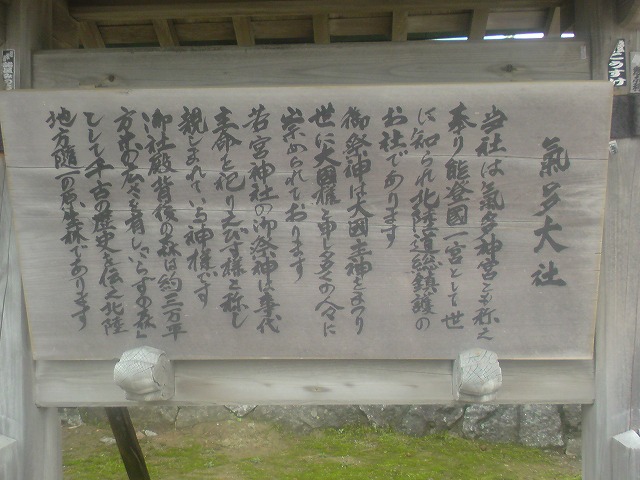 氣多大社
当社は氣多神宮とも称え
奉り能登國一宮として世
に知られ北陸道総鎮護の
お社であります
御祭神は大國主神をまつり
世に大国様と申し多くの人々に
崇められております
若宮神社の御祭神は事代
主命を祀りえびす様と称し
親しまれている神様です
御社殿背後の森は約三万平
方米の広さを有し「入らずの森」
として千古の歴史を伝え北陸
地方随一の原生森であります